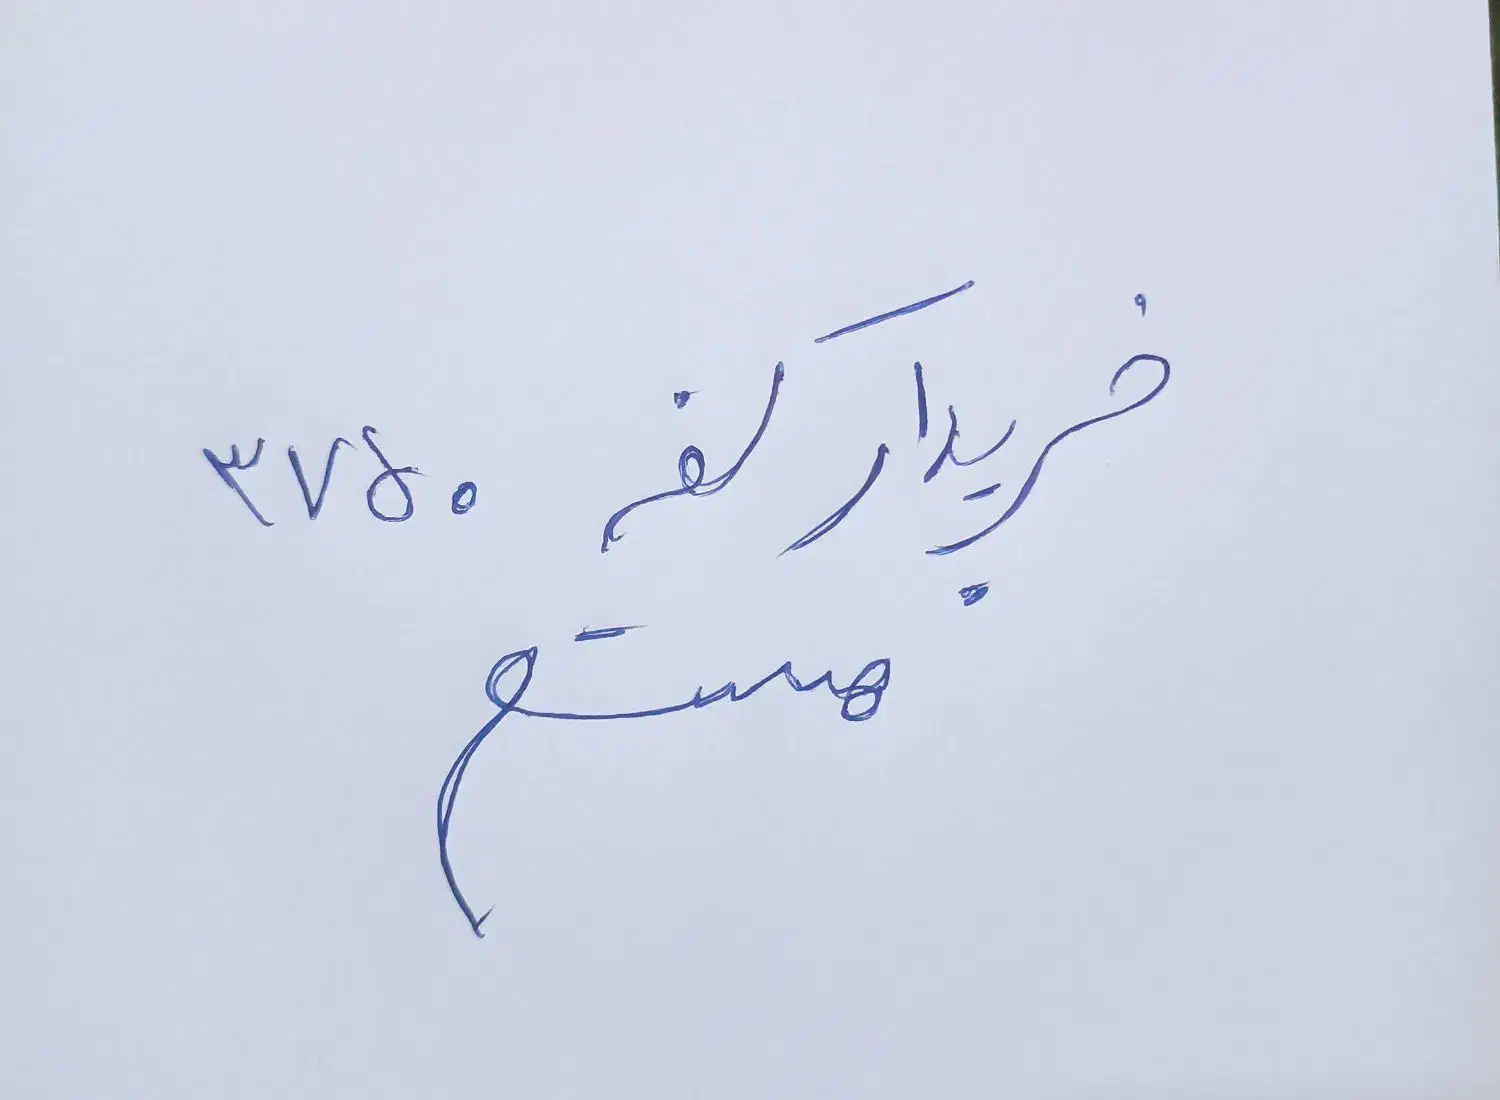 خریدار کفه ۳۷۵۰
هستم